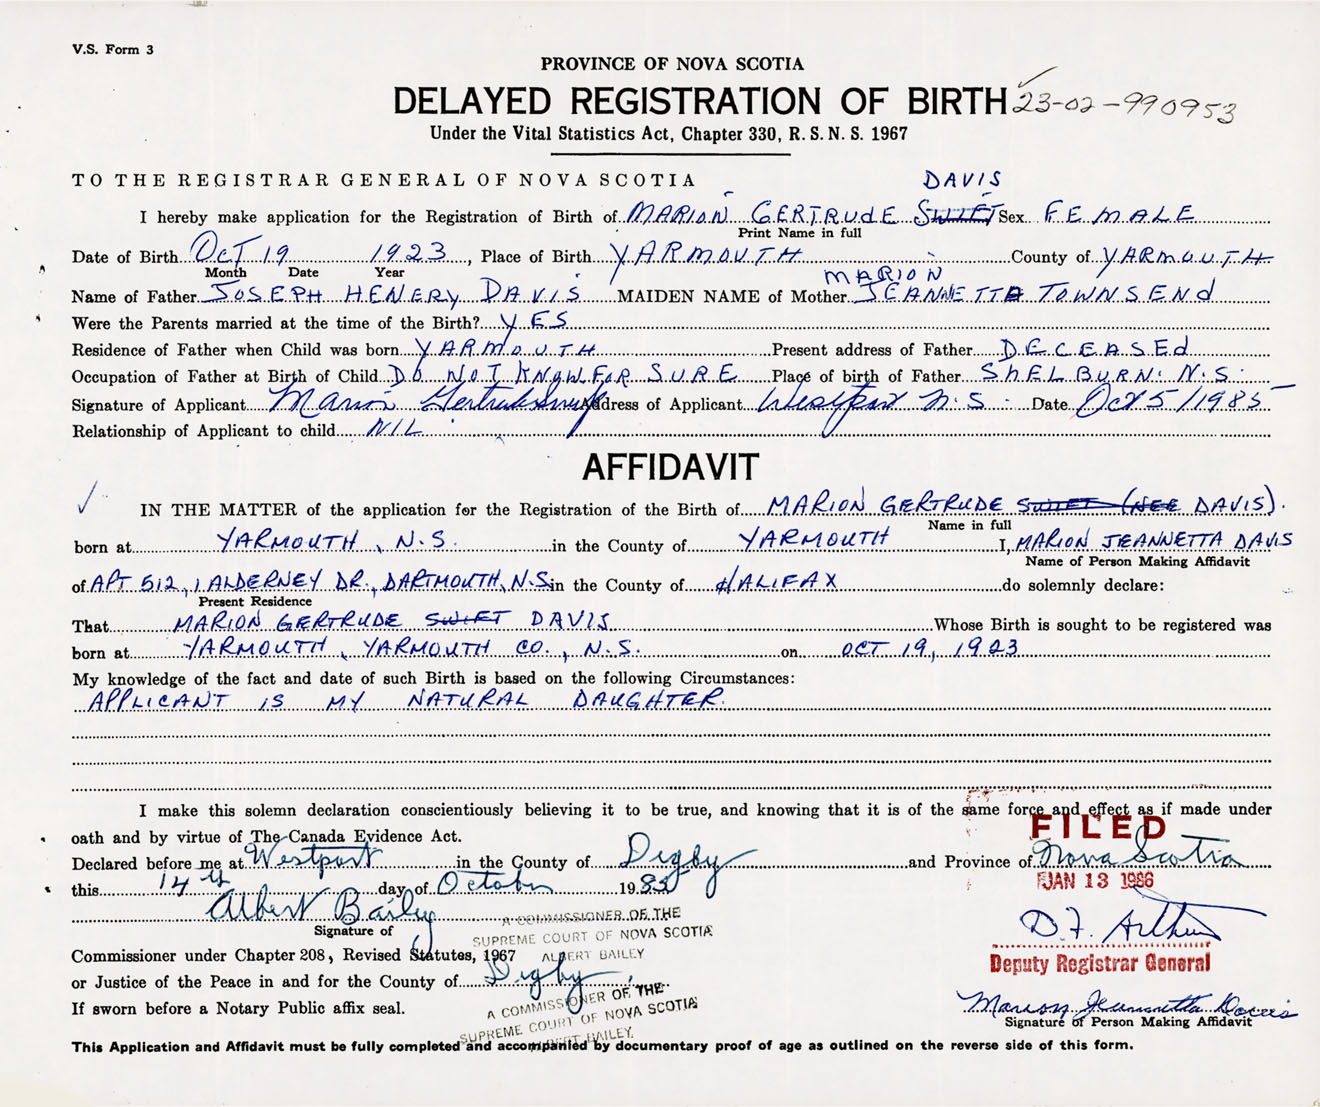 V.S. Form 3
PROVINCE OF NOVA SCOTIA
DELAYED REGISTRATION OF BIRTH 23-02-990953
Under the Vital Statistics Act, Chapter 330, R.S.N.S. 1967
TO THE REGISTRAR GENERAL OF NOVA SCOTIA DAVIS
I hereby make application for the Registration of Birth of MARION GERTRUDE SWIFT Sex FEMALE
Print Name in full
Date of Birth OCT 19 1923, Place of Birth YARMOUTH County of YARMOUTH
Month Date Year MARION
Name of Father JOSEPH HENERY DAVIS MAIDEN NAME of Mother JEANNETTA TOWNSEND
Were the Parents married at the time of the Birth? YES
Residence of Father when Child was born YARMOUTH Present address of Father DECEASED
Occupation of Father at Birth of Child DO NOT KNOW FOR SURE Place of birth of Father SHELBURN. N.S.
Signature of Applicant Marion Gertrude Swift Address of Applicant Westport N.S. Date Oct 5/1985
Relationship of Applicant to child NIL
AFFIDAVIT
IN THE MATTER of the application for the Registration of the Birth of MARION GERTRUDE SWIFT (NEE DAVIS).
Name in full
born at YARMOUTH, N.S. in the County of YARMOUTH I, MARION JEANNETTA DAVIS
Name of Person Making Affidavit
of APT 512, 1 ALDERNEY DR., DARTMOUTH, N.S. in the County of HALIFAX do solemnly declare:
Present Residence
That MARION GERTRUDE SWIFT DAVIS Whose Birth is sought to be registered was
born at YARMOUTH, YARMOUTH CO., N.S. on OCT 19, 1923
My knowledge of the fact and date of such Birth is based on the following Circumstances:
APPLICANT IS MY NATURAL DAUGHTER.
I make this solemn declaration conscientiously believing it to be true, and knowing that it is of the same force and effect as if made under
oath and by virtue of The Canada Evidence Act.
FILED
Declared before me at Westport in the County of Digby and Province of Nova Scotia
this 14th day of October 1985
JAN 13 1986
Albert Bailey
Signature of
A COMMISSIONER OF THE
SUPREME COURT OF NOVA SCOTIA
ALBERT BAILEY
D.F. Arthur
Deputy Registrar General
Commissioner under Chapter 208, Revised Statutes, 1967
or Justice of the Peace in and for the County of Digby
If sworn before a Notary Public affix seal.
A COMMISSIONER OF THE
SUPREME COURT OF NOVA SCOTIA
ALBERT BAILEY
Marion Jeannetta Davis
Signature of Person Making Affidavit
This Application and Affidavit must be fully completed and accompanied by documentary proof of age as outlined on the reverse side of this form.